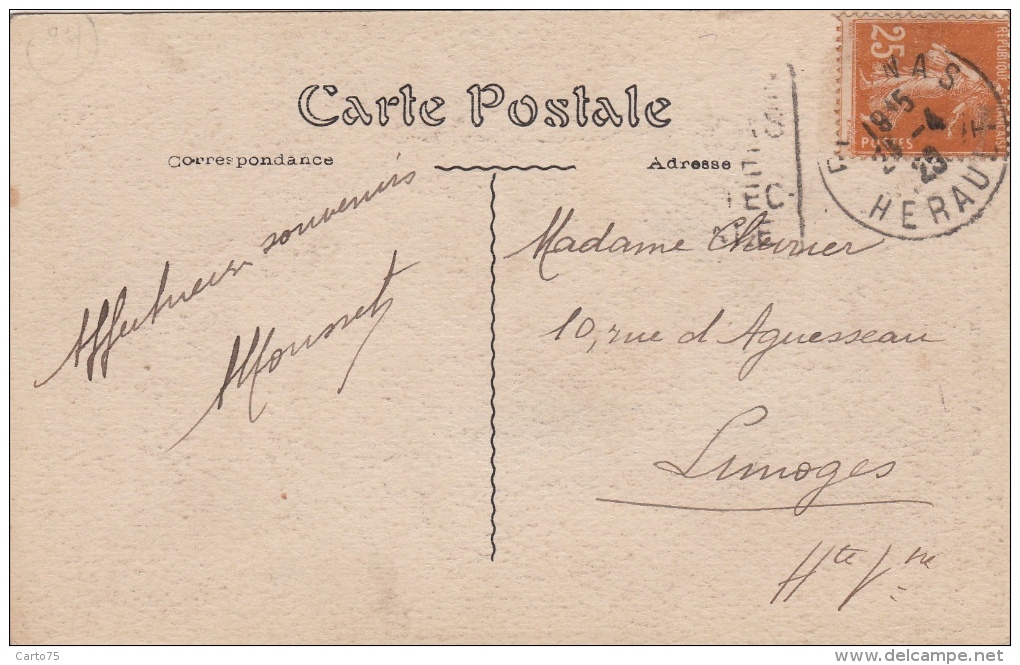 34
Carte Postale
Correspondance
Adresse
25
POSTES
NAS
18 15
-4
29
HERAULT
EC-
Affectueux souvenirs
Mousset
Madame Chevrier
10, rue d'Aguesseau
Limoges
Hte Vne
Carto75
www.delcampe.net